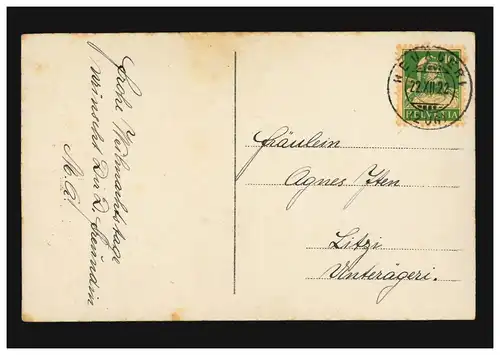 Frohe Weihnachtstage
wünscht Dir D. Freundin
M. A.
22.XII.22
HELVETIA
Fräulein
Agnes Iten
Litzi
Unterägeri.